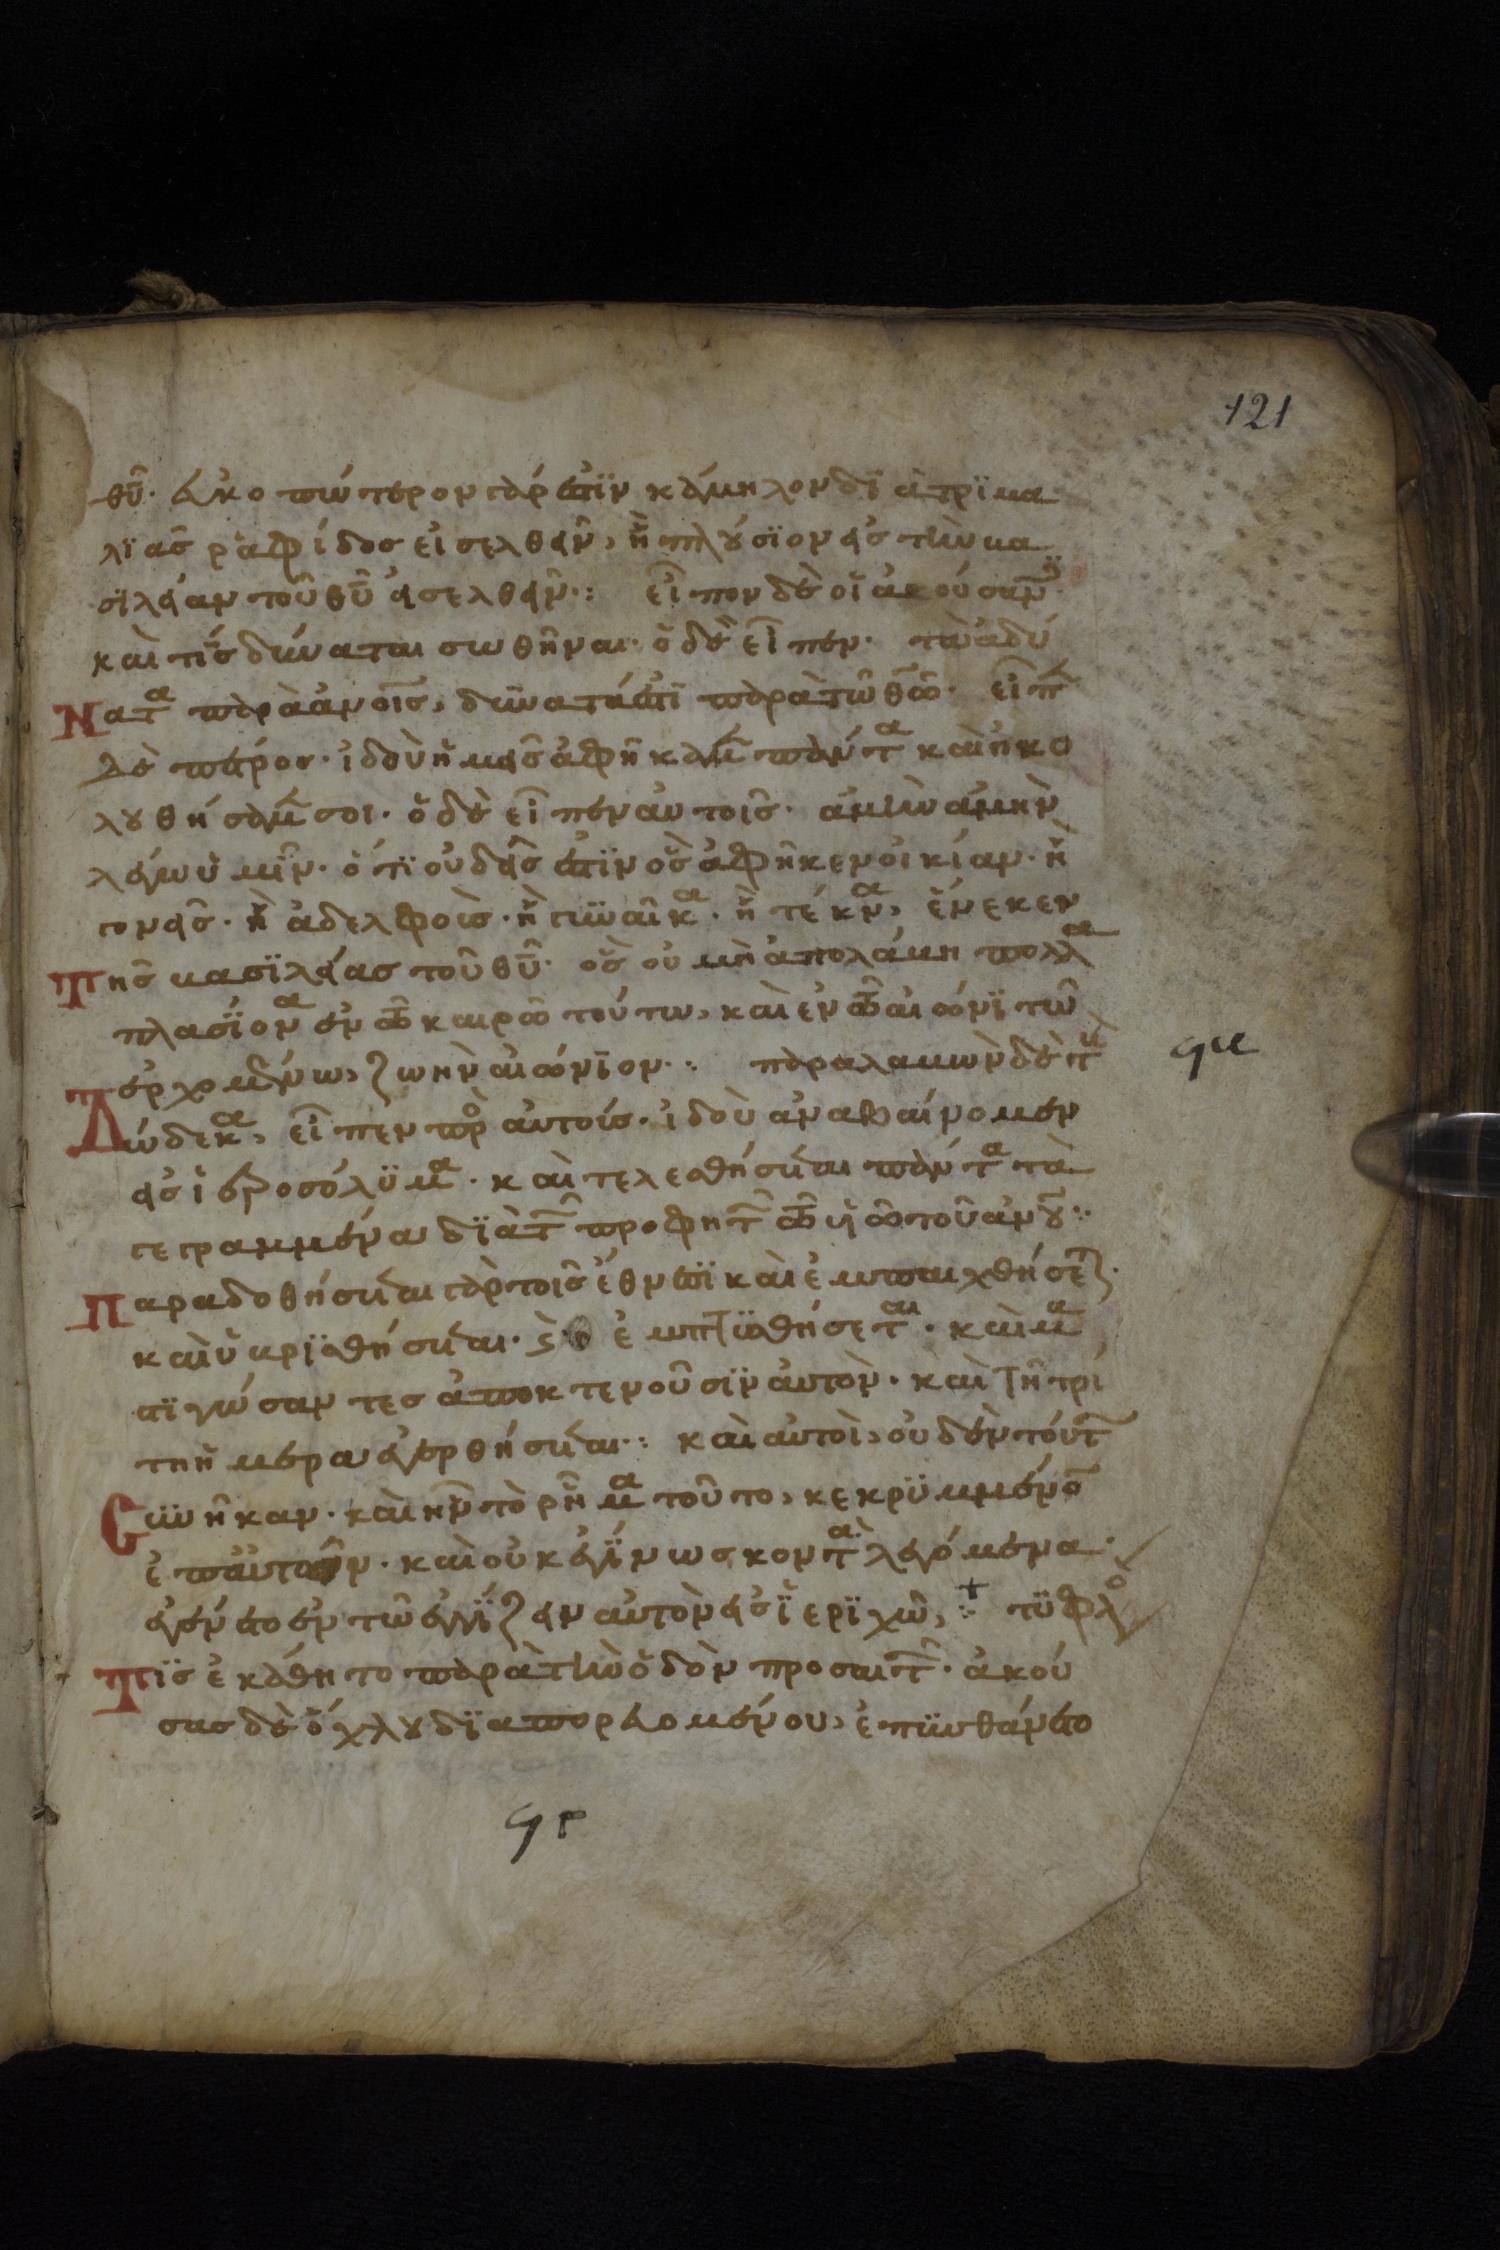 121
θῦ· ἐυκοπώτερον γάρ ἐστϊν κάμηλον δϊὰ τρϊμα
λϊᾶσ ῥαφίδοσ εἰσελθεῖν, ἢ πλούσϊον εἰσ τὴν βα
σϊλείαν τοῦ θῦ εἰσελθεῖν·: εἶπον δὲ οἱ ἀκούσαντ
καὶ τίσ δύναται σωθῆναι· ὁ δὲ εἶπεν· τὰ ἀδύ
νατα παρὰ ἀνοισ, δϋνατά ἐστϊ παρὰ τῶ θῶ· εἶπε
δὲ πέτροσ· ἰδοὺ ἡμεῖσ ἀφήκαμεν πάντα καὶ ἠκο
λουθήσαμέν σοι· ὁ δὲ εἶπεν αὐτοῖσ· ἀμὴν ἀμὴν
λέγω ὑμῖν· ὅτϊ οὐδείσ ἐστϊν ὃσ ἀφῆκεν οἰκίαν· ἢ
γονεῖσ· ἢ ἀδελφοὺσ· ἢ γϋναῖκα· ἢ τέκνα, ἕνεκεν
τῆσ βασϊλείασ τοῦ θῦ· ὃσ οὐ μὴ ἀπολάβη πολλα
πλασίονα ἐν τῶ καιρῶ τούτω, καὶ ἐν τῶ αἰῶνϊ τῶ
ἐρχομένω, ζωὴν αἰώνϊον·: παραλαβὼν δὲ τοὺ
δώδεκα, εἶπεν πρὸ αὐτούσ· ἰδοὺ ἀναβαίνομεν
εἰσ ἱεροσόλϋμα· καὶ τελεσθήσεται πάντα τὰ
γεγραμμένα δϊὰ τῶν προφητῶν τῶ υἱῶ τοῦ ἀνου·:
παραδοθήσεται γὰρ τοῖσ ἔθνεσϊ καὶ ἐμπαιχθήσεται·
καὶ ὑβρϊσθήσεται· καὶ ἐμπτϋσθήσεται· καὶ μα
στϊγώσαντεσ ἀποκτενοῦσϊν αὐτὸν· καὶ τῆ τρί
τη ἡμέρα ἐγερθήσεται·: καὶ αὐτοὶ, οὐδὲν τούτων
σϋνῆκαν· καὶ ἦν τὸ ῥῆμα τοῦτο, κεκρϋμμένον
ἀπ' αὐτῶν· καὶ οὐκ ἐγίνωσκον τὰ λεγόμενα·
ἐγένετο ἐν τῶ ἐγγΐζειν αὐτὸν εἰσ ἱερϊχὼ, ·: + τϋφλὸ
τϊσ ἐκάθητο παρὰ τὴν ὁδὸν προσαιτῶν· ἀκού
σασ δὲ ὄχλου δϊαπορευομένου, ἐπϋνθάνετο